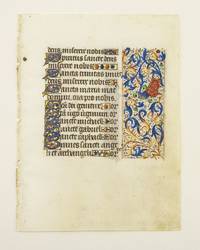 deus miserere nobis
Spiritus sancte deus
miserere nobis
Sancta trinitas unus
deus miserere nobis
Sancta maria
ora pro nobis
Sancta dei genitrix or
Sancta virgo virginum or
Sancte michael or
Sancte gabriel or
Sancte raphael or
Omnes sancti angeli
et archangeli